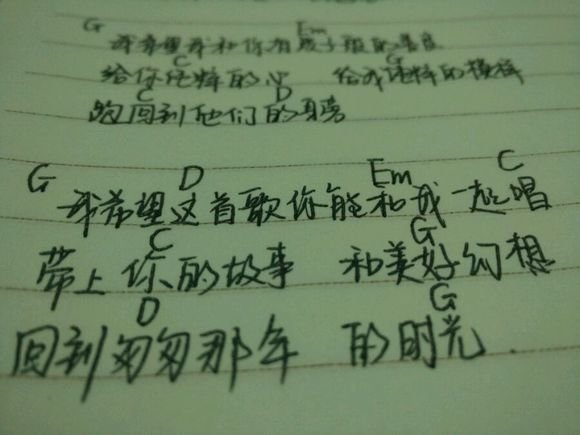 G Em
我希望我和你有
C G
给你纯粹的心 给我纯粹的模样
C D
跑回到他们的身旁
G D Em C
我希望这首歌你能和我一起唱
C G
带上你的故事 和美好幻想
D G
回到匆匆那年 的时光.